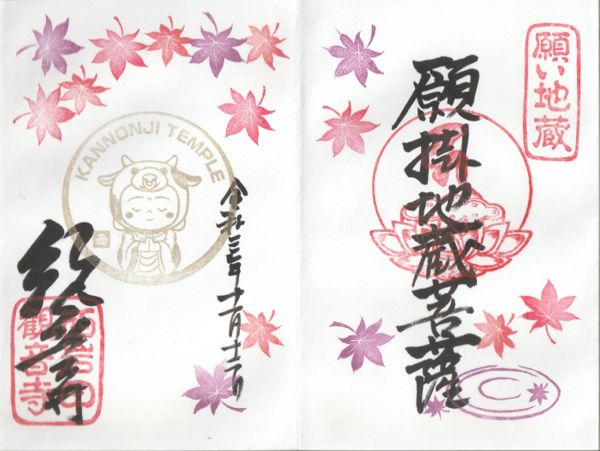 願い地蔵
願掛地蔵菩薩
令和三年十一月十二日
KANNONJI TEMPLE
観音寺
観音寺